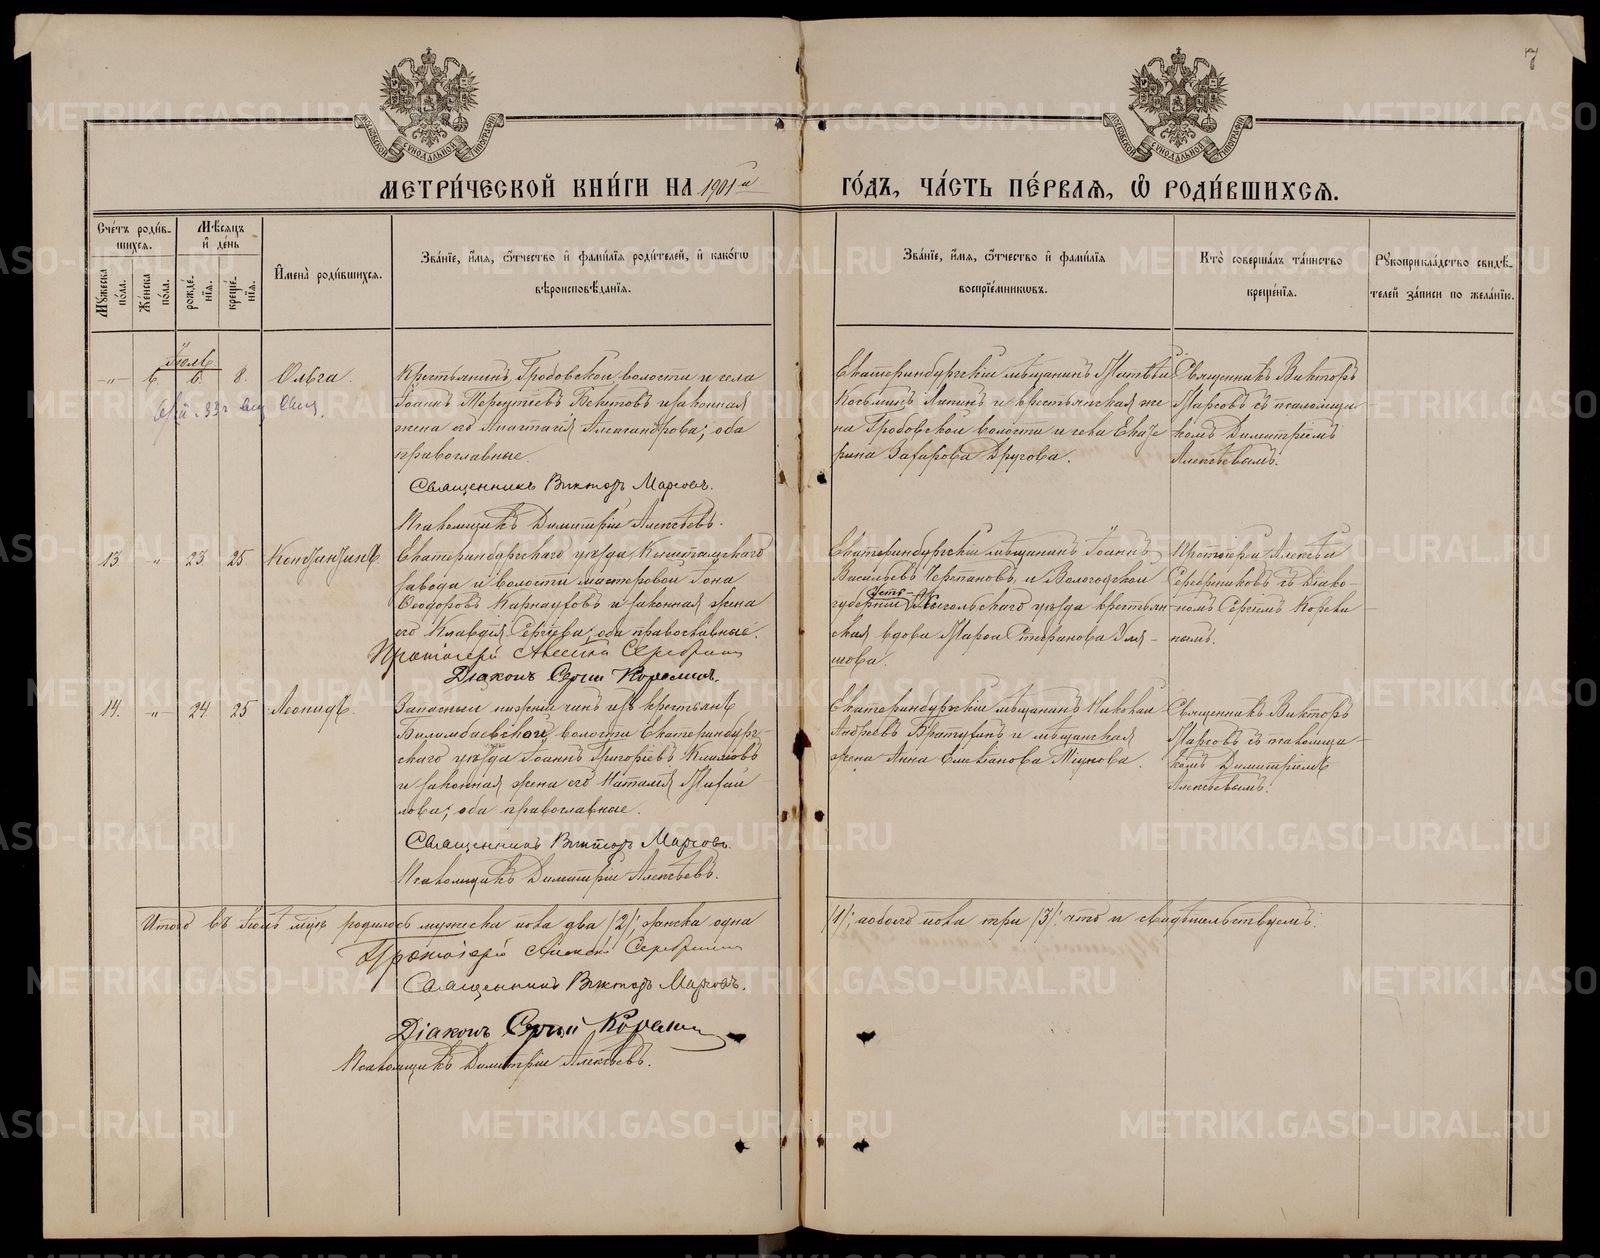 7
МОСКОВСКОЙ СѴНОДАЛЬНОЙ ТИПОГРАФІИ
МОСКОВСКОЙ СѴНОДАЛЬНОЙ ТИПОГРАФІИ
МЕТРИ́ЧЕСКОЙ КНИ́ГИ НА 1901й ГО́ДЪ, ЧА́СТЬ ПЕ́РВАѦ, Ѡ҆ РОДИ́ВШИХСѦ.
Сче́тъ роди́в-
шихсѧ.
Мꙋ́жеска по́ла.
Же́нска по́ла.
Мѣ́сѧцъ и҆ де́нь
рожде́-
нїѧ.
креще́-
нїѧ.
И҆мена̀ роди́вшихсѧ.
Зва́нїе, и҆́мѧ, ѻ҆́тчество и҆ фами́лїѧ роди́телей, и҆ како́гѡ
вѣроисповѣ́данїѧ.
Зва́нїе, и҆́мѧ, ѻ҆́тчество и҆ фами́лїѧ
воспрїе́мникѡвъ.
Кто̀ соверша́лъ та́инство
креще́нїѧ.
Рꙋкоприкла́дство свидѣ́-
телей за́писи по жела́нїю.
Іюль
-"- 6. 6. 8. Ольга.
Крестьянинъ Гробовской волости и села
Іоаннъ Терентьевъ Бекитовъ и законная
жена его Анастасія Александрова; оба
православные.
Священникъ Викторъ Марсовъ.
Псаломщикъ Димитрій Алексѣевъ.
Екатеринбургскій мѣщанинъ Матвѣй
Косьминъ Лапинъ и крестьянская же
на Гробовской волости и села Екате
рина Захарова Другова.
Священникъ Викторъ
Марсовъ съ псаломщи
комъ Димитріемъ
Алексѣевымъ.
13 " 23. 25 Константинъ
Екатеринбургскаго уѣзда, Кыштымскаго
завода и волости мастеровой Іона
Ѳеодоровъ Карнауховъ и законная жена
его Клавдія Сергіева; оба православные.
Протоіерей Алексій Серебрен
Діаконъ Сергій Корелинъ.
Екатеринбургскій мѣщанинъ Іоаннъ
Васильевъ Черепановъ и Вологодской
губерніи Усть-Сысольскаго уѣзда крестьян
ская вдова Марѳа Стефанова Уля-
шова.
Протоіерей Алексѣй
Серебрениковъ съ діако-
номъ Сергіемъ Корели
нымъ.
14. -"- 24. 25 Леонидъ.
Запасный нижній чинъ изъ крестьянъ
Билимбаевской волости Екатеринбург-
скаго уѣзда Іоаннъ Григорьевъ Климовъ
и законная жена его Наталія Михай
лова; оба православные.
Священникъ Викторъ Марсовъ
Псаломщикъ Димитрій Алексѣевъ.
Екатеринбургскій мѣщанинъ Николай
Андреевъ Братухинъ и мѣщанская
жена Анна Селиванова
Священникъ Викторъ
Марсовъ съ псаломщи
комъ Димитріемъ
Алексѣевымъ.
Итого въ Іюлѣ мцѣ родилось мужеска пола два /2/; женска одна /1/; обоего пола три /3/: что и свидѣтельствуемъ:
Протоіерей Алексій Серебрен
Священникъ Викторъ Марсовъ.
Діаконъ Сергій Корелин
Псаломщикъ Димитрій Алексѣевъ.
METRIKI.GASO-URAL.RU